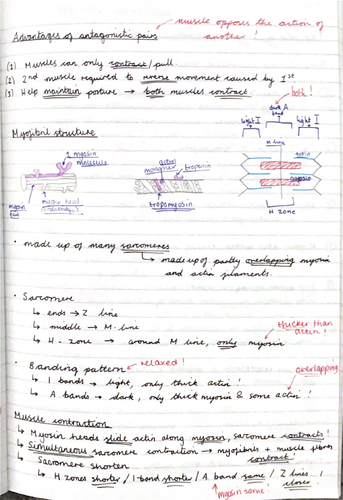 muscle opposes the action of
another!
Advantages of antagonistic pairs
(1) Muscles can only contract/pull
(2) 2nd muscle required to reverse movement caused by 1st.
(3) Help maintain posture → both muscles contract.
both!
dark A
band
light I
light I
M line
Myofibril structure
1 myosin
molecule
actin
monomer
troponin
actin
myosin
myosin head
myosin
tropomyosin
H zone
• made up of many sarcomeres
↳ made up of partly overlapping myosin
and actin filaments.
• Sarcomere
↳ ends → Z line
↳ middle → M-line
↳ H-zone → around M line, only myosin
thicker than
actin!
• Banding pattern
relaxed!
overlapping
↳ I bands → light, only thick actin!
↳ A bands → dark, only thick myosin & some actin!
Muscle contraction
↳ Myosin heads slide actin along myosin, sarcomere contracts!
↳ Simultaneous sarcomere contraction → myofibrils + muscle fibres
contract!
↳ Sarcomere shorten
↳ H zones shorter / I-band shorter / A band same / Z lines
closer
myosin same!